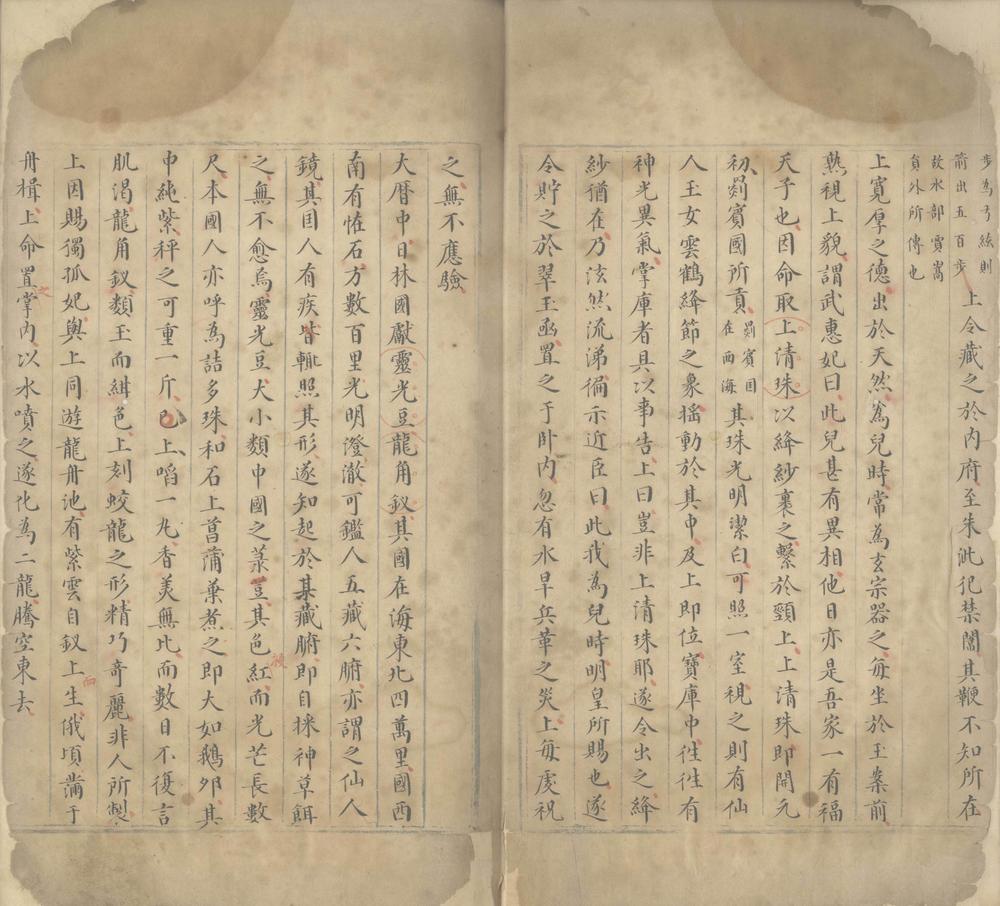 步為弓絃則
箭出五百步
故水部賈嵩
員外所傳也
上令藏之於內府至朱泚犯禁闥其鞭不知所在
上寬厚之德出於天然為兒時常為玄宗器之每坐於玉案前
熟視上貌謂武惠妃曰此兒甚有異相他日亦是吾家一有福
天子也因命取上清珠以絳紗裹之繫於頸上上清珠即開元
初罽賓國所貢
罽賓國
在西海
其珠光明潔白可照一室視之則有仙
人玉女雲鶴絳節之象搖動於其中及上即位寶庫中徃徃有
神光異氣掌庫者具以事告上曰豈非上清珠耶遂令出之絳
紗猶在乃泫然流涕徧示近臣曰此我為兒時明皇所賜也遂
令貯之於翠玉函置之于卧內忽有水旱兵革之災上每虔祝
之無不應驗
大曆中日林國獻靈光豆龍角釵其國在海東北四萬里國西
南有怪石方數百里光明澄澈可鑑人五藏六腑亦謂之仙人
鏡其国人有疾皆輒照其形遂知起於某藏腑即自採神草餌
之無不愈焉靈光豆大小類中國之菉荳其色紅而光芒長數
尺本國人亦呼為詰多珠和石上菖蒲葉煮之即大如鵝夘其
中純紫秤之可重一斤已上啗一丸香美無比而數日不復言
肌渴龍角釵類玉而紺色上刻蛟龍之形精巧奇麗非人所製
上因賜獨孤妃與上同遊龍舟池有紫雲自釵上生俄頃滿于
舟楫上命置掌內以水噴之遂化為二龍騰空東去